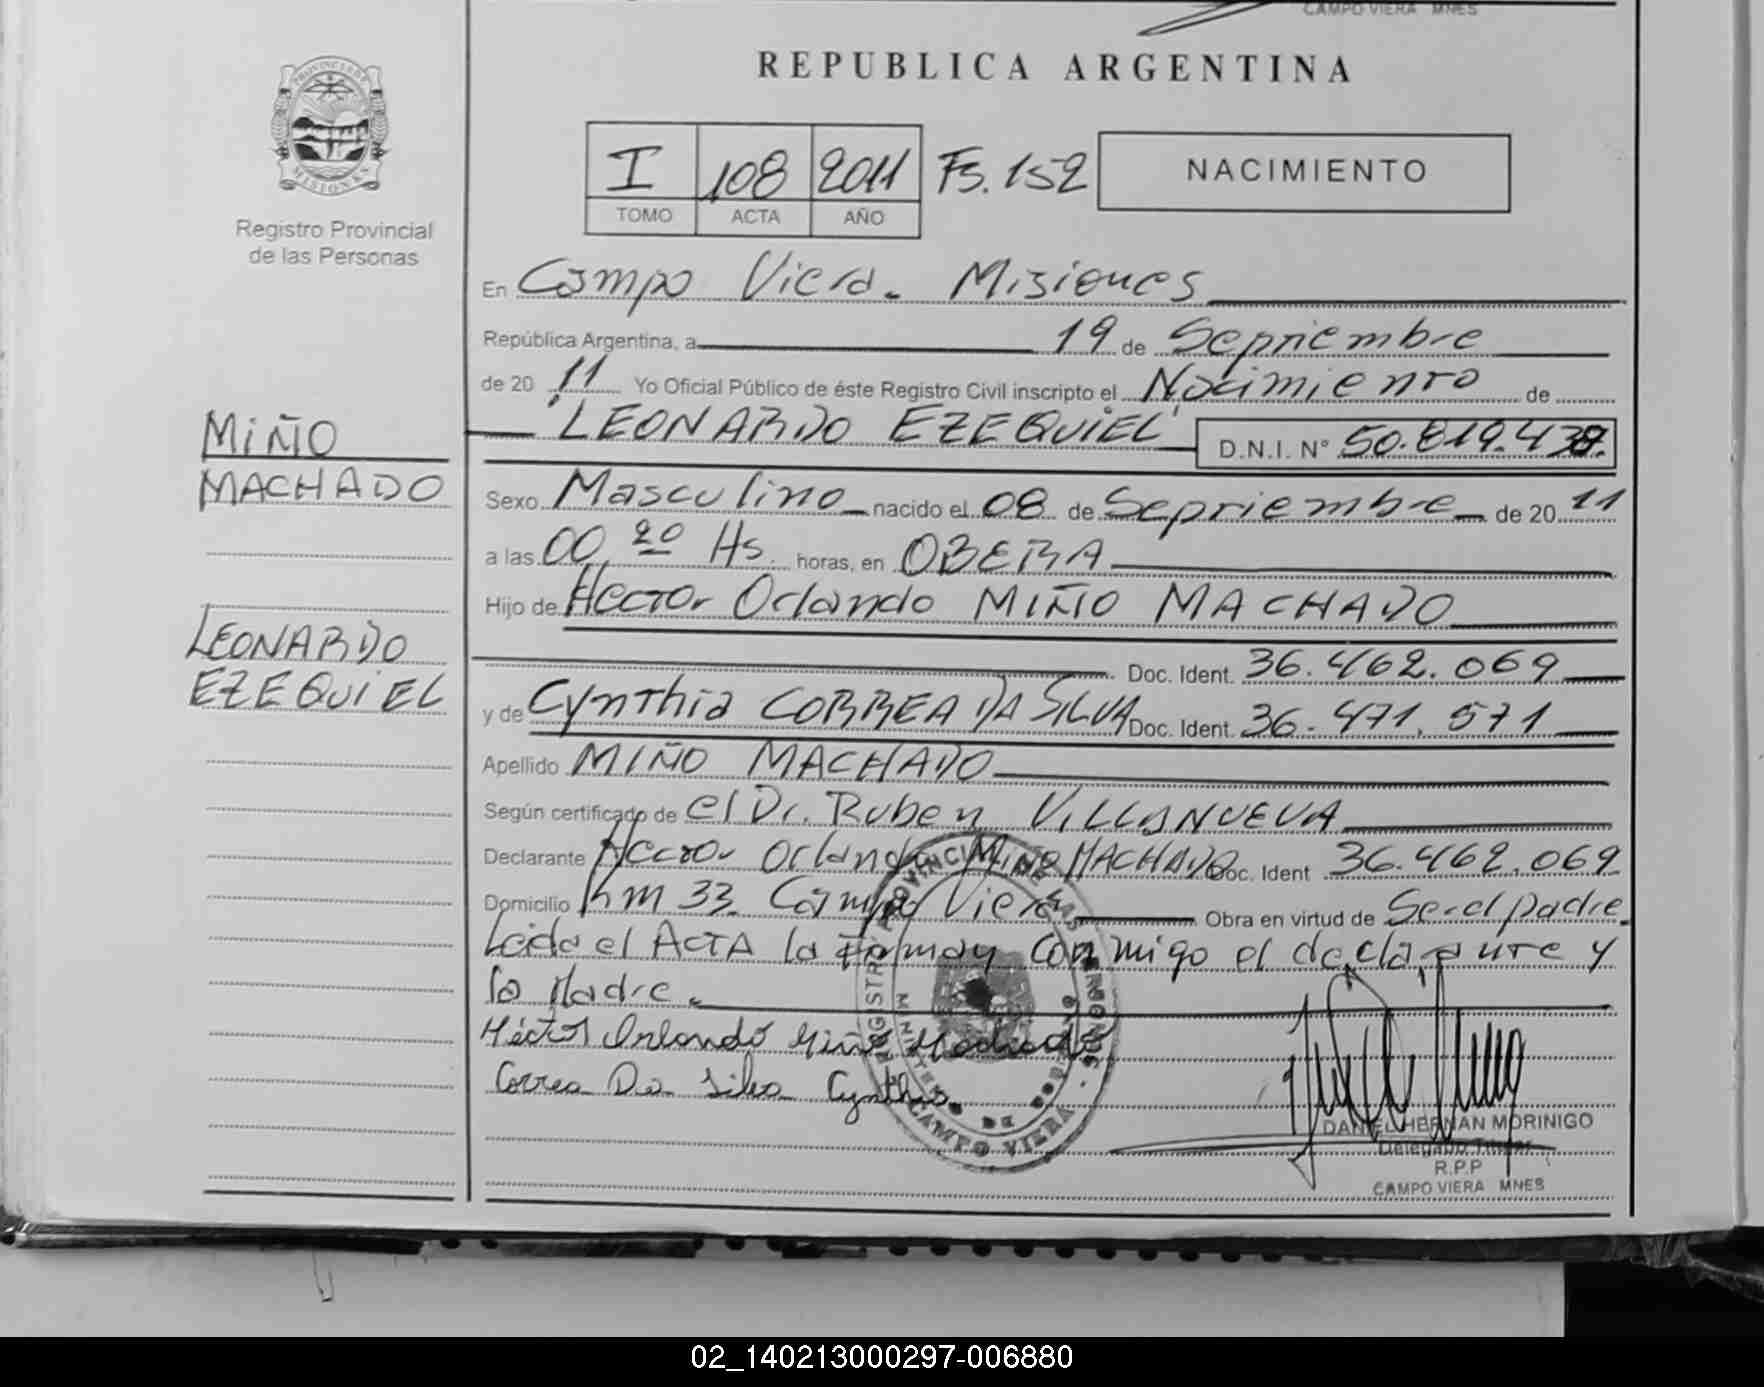 CAMPO VIERA MNES
REPUBLICA ARGENTINA
PROVINCIA DE
MISIONES
Registro Provincial
de las Personas
I 108 2011 Fs. 152
TOMO ACTA AÑO
NACIMIENTO
En Campo Viera. Misiones
República Argentina, a 19 de Septiembre
de 20 11 Yo Oficial Público de éste Registro Civil inscripto el Nacimiento de
LEONARDO EZEQUIEL D.N.I. N° 50.819.437.
MIÑO
MACHADO
LEONARDO
EZEQUIEL
Sexo Masculino nacido el 08 de Septiembre de 20 11
a las 00,20 Hs. horas, en OBERA
Hijo de Hector Orlando MIÑO MACHADO
Doc. Ident. 36.462.069
y de Cynthia CORREA DA SILVA Doc. Ident. 36.471.571
Apellido MIÑO MACHADO
Según certificado de el Dr. Ruben VILLANUEVA
Declarante Hector Orlando Miño MACHADO Doc. Ident 36.462.069
Domicilio Km 33 Campo Viera Obra en virtud de Ser el padre
Leida el ACTA la Forman conmigo el declarante y
la Madre.
Héctor Orlando Miño Machado
Correa Da Silva Cynthia
CAMPO VIERA
DANIEL HERNAN MORINIGO
Delegado Titular
R.P.P
CAMPO VIERA MNES
02_140213000297-006880